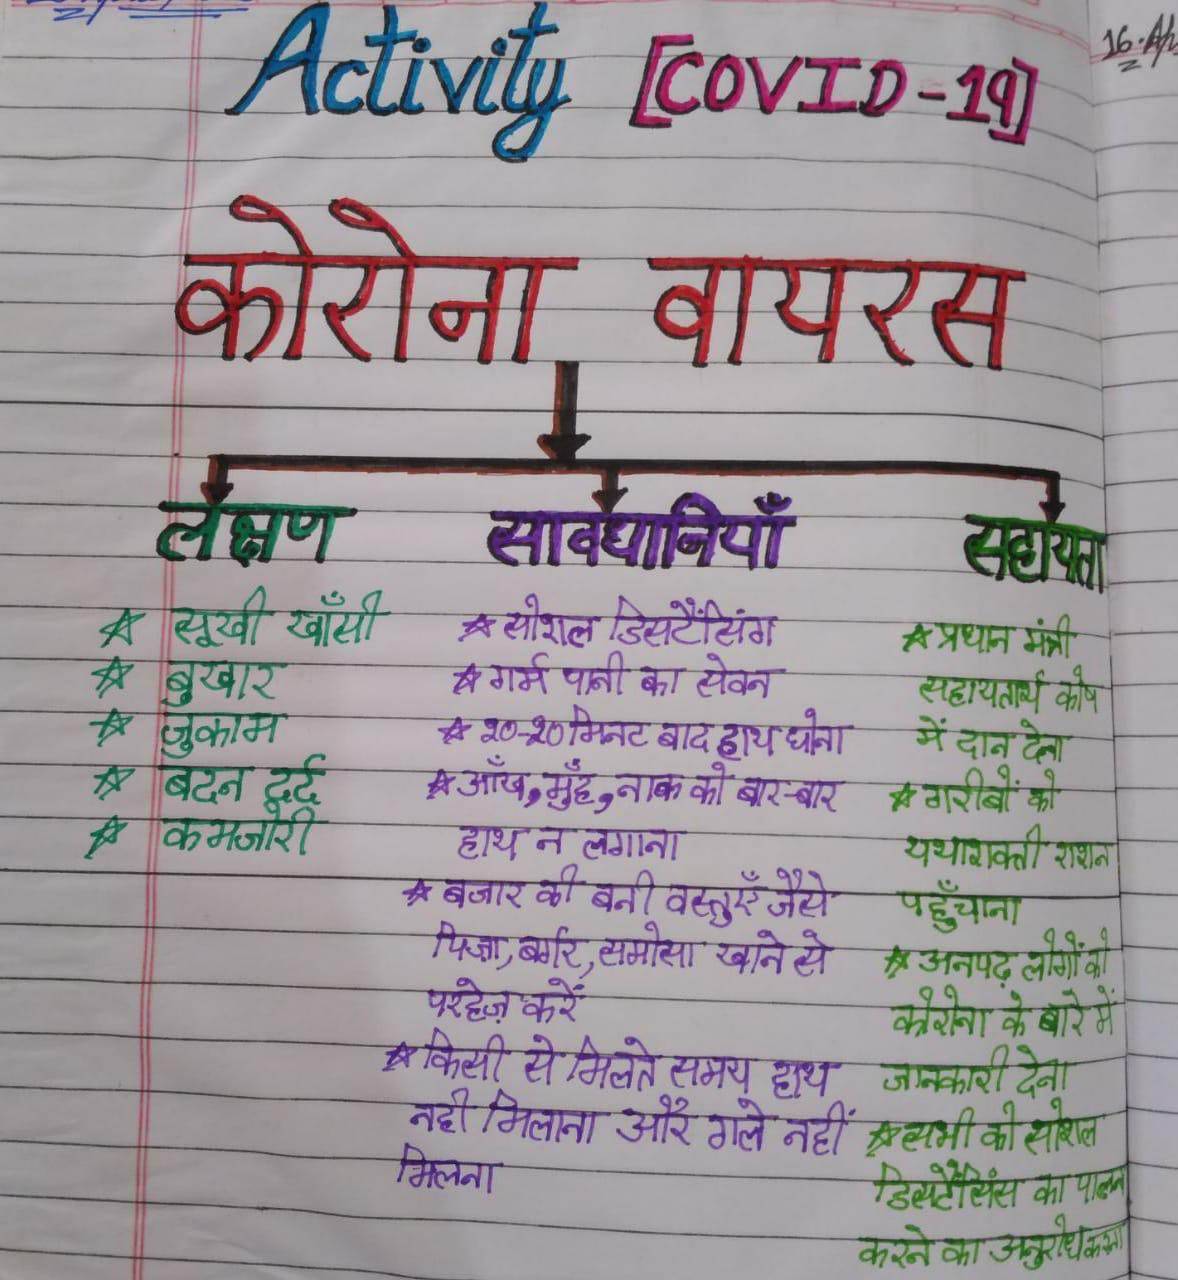 Activity [COVID-19]
16.
कोरोना वायरस
लक्षण
☆ सूखी खाँसी
☆ बुखार
☆ जुकाम
☆ बदन दर्द
☆ कमजोरी
सावधानियाँ
☆ सोशल डिसटैंसिंग
☆ गर्म पानी का सेवन
☆ 20-20 मिनट बाद हाथ धोना
☆ आँख, मुँह, नाक को बार-बार
हाथ न लगाना
☆ बजार की बनी वस्तुएँ जैसे
पिज्जा, बर्गर, समोसा खाने से
परहेज़ करें
☆ किसी से मिलते समय हाथ
नही मिलाना और गले नहीं
मिलना
सहायता
☆ प्रधान मंत्री
सहायतार्थ कोष
में दान देना
☆ गरीबों को
यथाशक्ती राशन
पहुँचाना
☆ अनपढ़ लोगों को
कोरोना के बारे में
जानकारी देना
☆ सभी को सोशल
डिसटैंसिंस का पालन
करने का अनुरोध करना